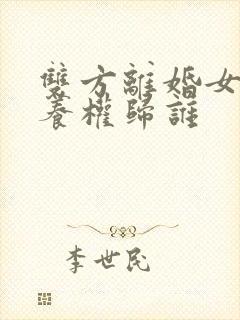 雙方離婚女
養權歸誰
李世民